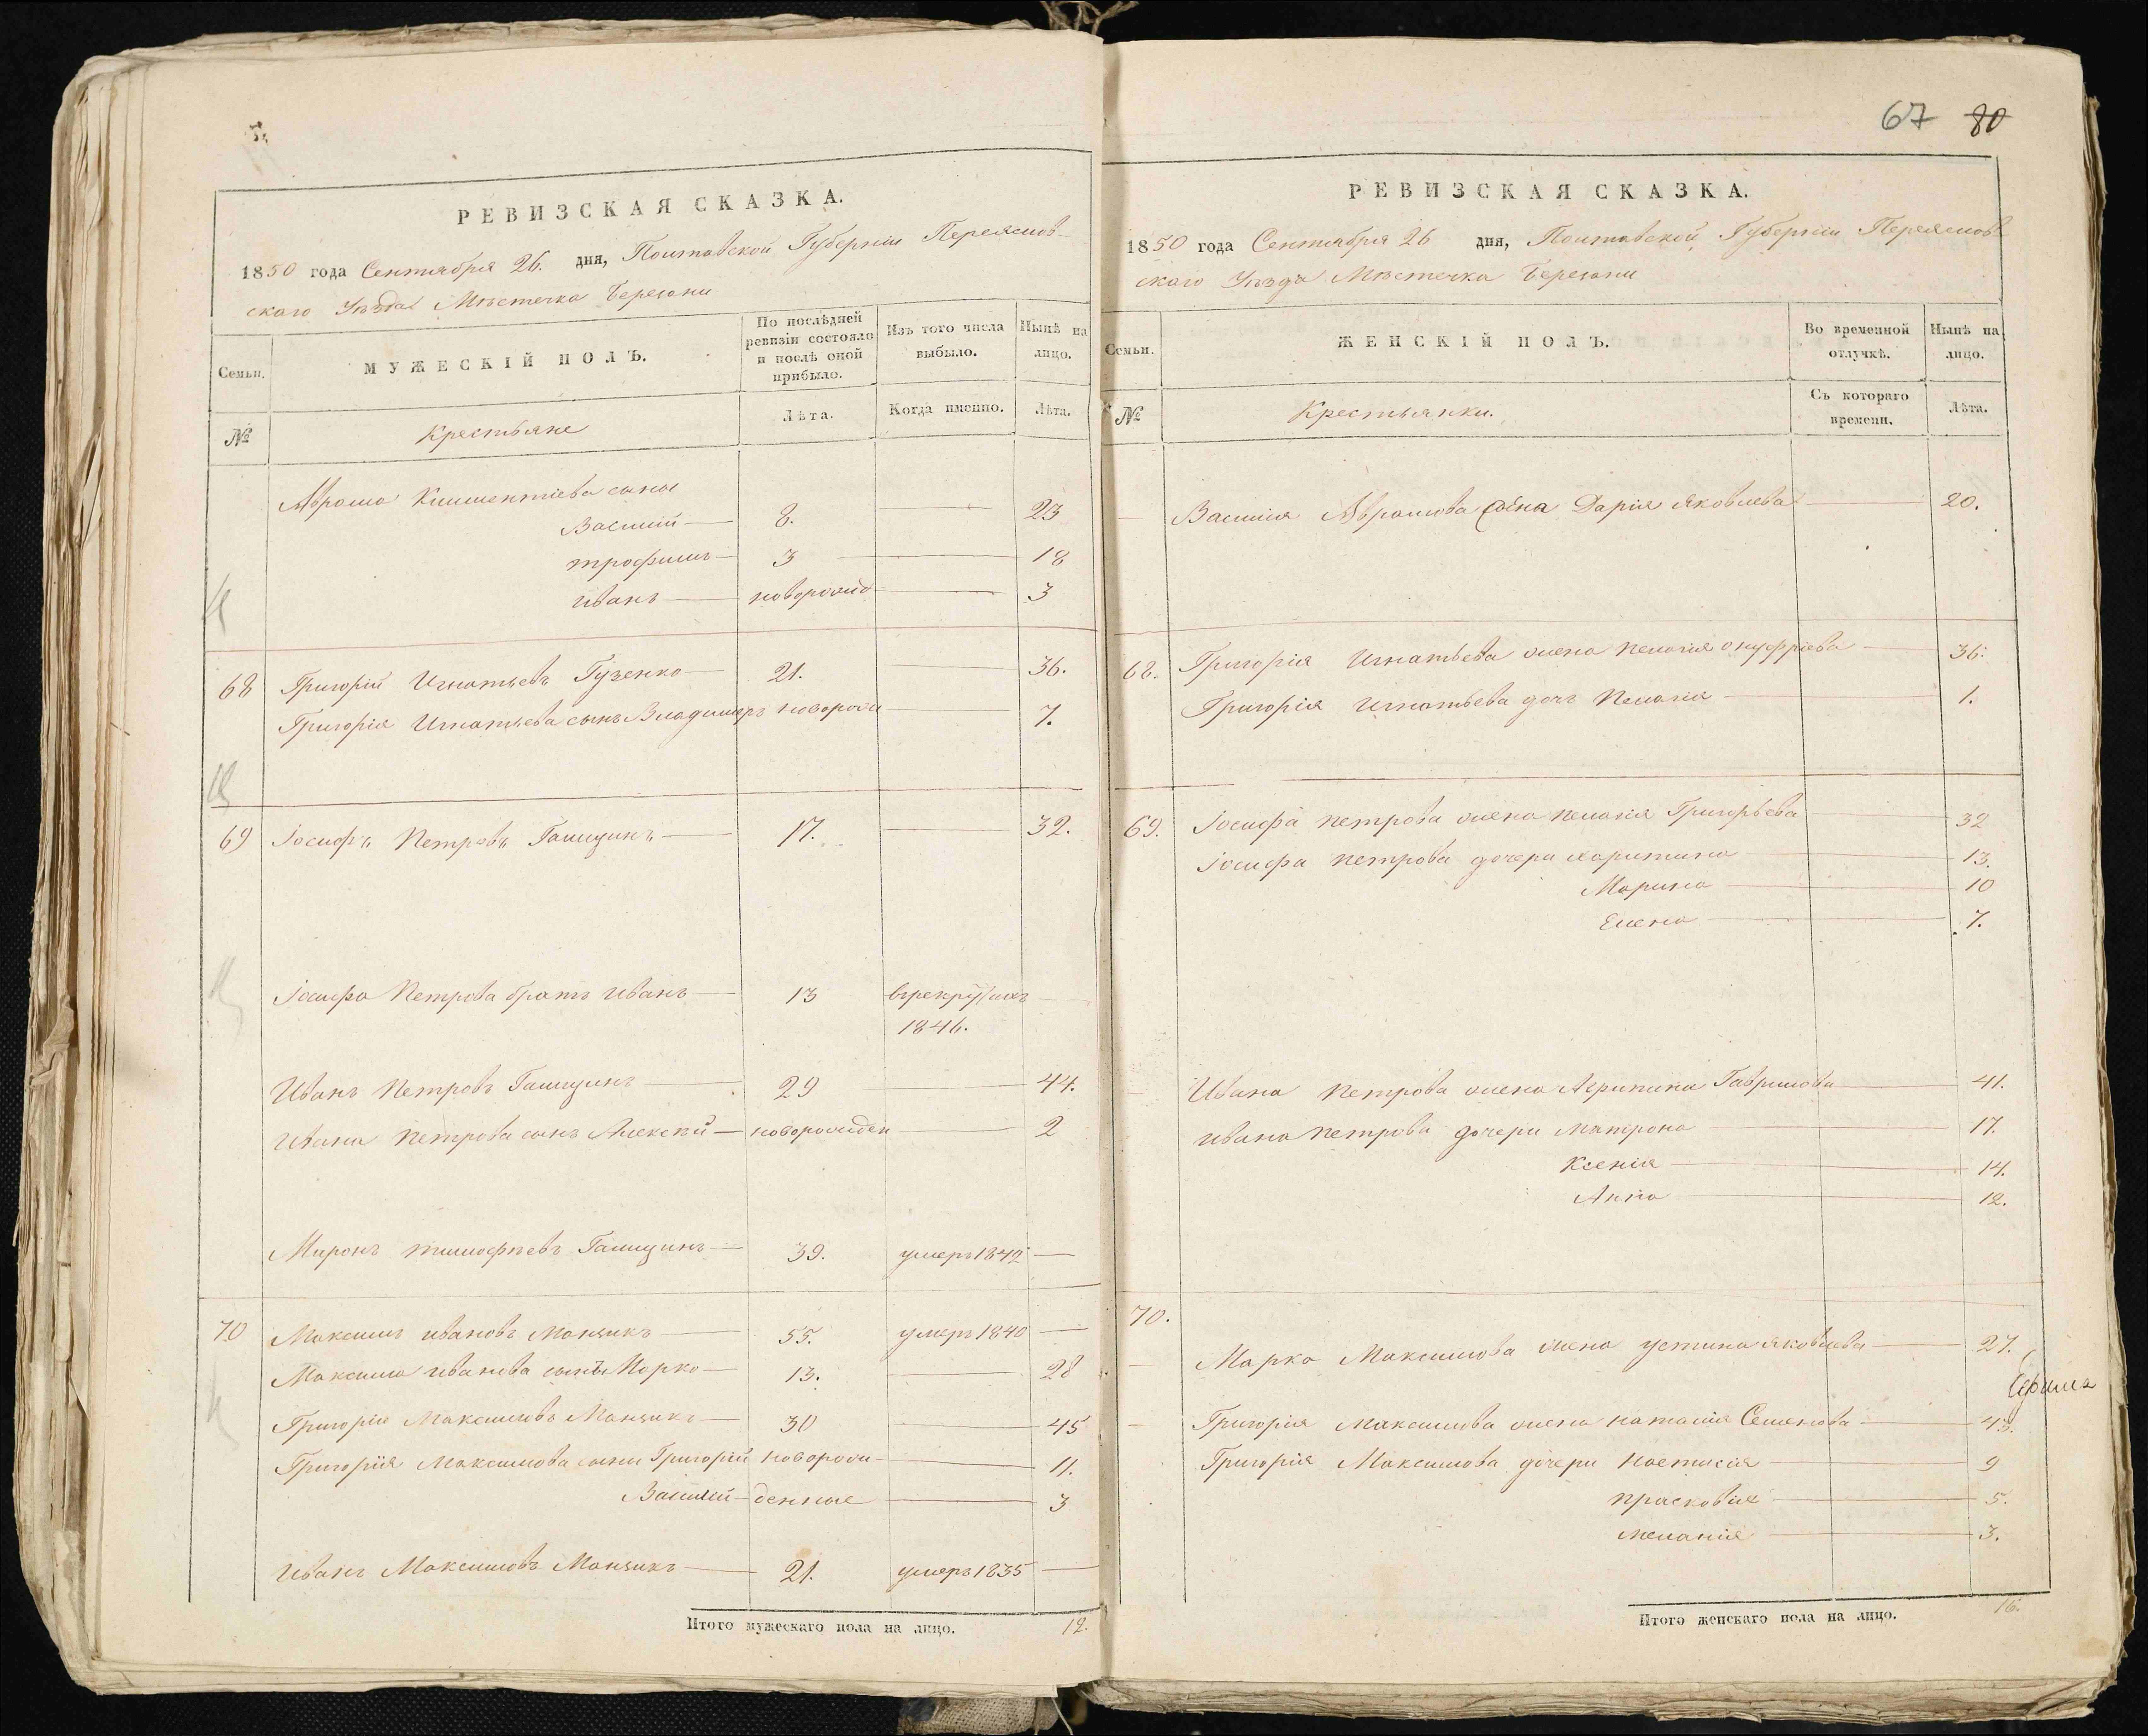 67 80
РЕВИЗСКАЯ СКАЗКА.
1850 года Сентября 26. дня, Полтавской Губерніи Переяслов-
скаго Уѣзда Мѣстечка Березани
Семьи.
МУЖЕСКІЙ ПОЛЪ.
По послѣдней ревизіи состояло и послѣ оной прибыло.
Изъ того числа выбыло.
Нынѣ на лицо.
№
Крестьяне
Лѣта.
Когда именно.
Лѣта.
Аврама Климентіева сыны
Василій — 8. — 23
трофимъ — 3 — 18
иванъ — новорожд — 3
68 Григорій Игнатьевъ Гузенко — 21. — 36.
Григорія Игнатьева сынъ Владимеръ новорож — 7.
69 Іосифъ Петровъ Галицинъ — 17. — 32.
Іосифа Петрова братъ иванъ — 13 —
1846.
Иванъ Петровъ Галицинъ — 29 — 44.
ивана Петрова сынъ Алексѣй — новорожден — 2
Миронъ тимофѣевъ Галицинъ — 39. умеръ 1842 —
70 Максимъ ивановъ — 55. умеръ 1840 —
Максима иванова сынъ Марко — 13. — 28
Григорій Максимовъ — 30 — 45
Григорія Максимова сыны Григорій новорож- — 11.
Василій — денные — 3
иванъ Максимовъ — 21. умеръ 1835 —
Итого мужескаго пола на лицо. 12.
РЕВИЗСКАЯ СКАЗКА.
1850 года Сентября 26 дня, Полтавской Губерніи Переяслов
скаго Уѣзда Мѣстечка Березани
Семьи.
ЖЕНСКІЙ ПОЛЪ.
Во временной отлучкѣ.
Нынѣ на лицо.
№
Крестьянки.
Съ котораго времени.
Лѣта.
Василія Аврамова жена Дарія Яковлева — 20.
68. Григорія Игнатьева жена Пелагія онуфріева — 36.
Григорія Игнатьева дочь Пелагія — 1.
69. Іосифа петрова жена Пелагія Григорьева — 32
Іосифа петрова дочери харитина — 13.
Марина — 10
Елена — 7.
Ивана Петрова жена Агрипина Гаврилова — 41.
ивана петрова дочери матрона — 17.
Ксенія — 14.
Анна — 12.
70.
Марка Максимова жена устина яковлева — 27.
Григорія Максимова жена наталія Семенова — 43.
Григорія Максимова дочери настасія — 9
прасковія — 5.
меланія — 3.
Итого женскаго пола на лицо. 16.